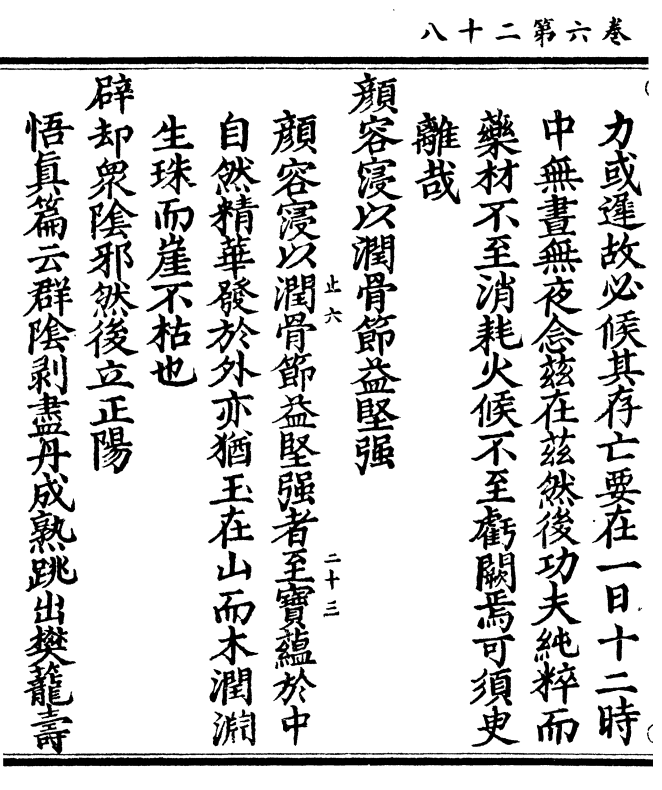 卷六第二十八
力或遲故必候其存亡要在一日十二時
中無晝無夜念茲在茲然後功夫純粹而
藥材不至消耗火候不至虧闕焉可須臾
離哉
顏容寖以潤骨節益堅强
顏容寖以潤骨節益堅强者至寶蘊於中
止六
二十三
自然精華發於外亦猶玉在山而木潤淵
生珠而崖不枯也
辟却衆陰邪然後立正陽
悟真篇云群陰剥盡丹成熟跳出樊籠壽